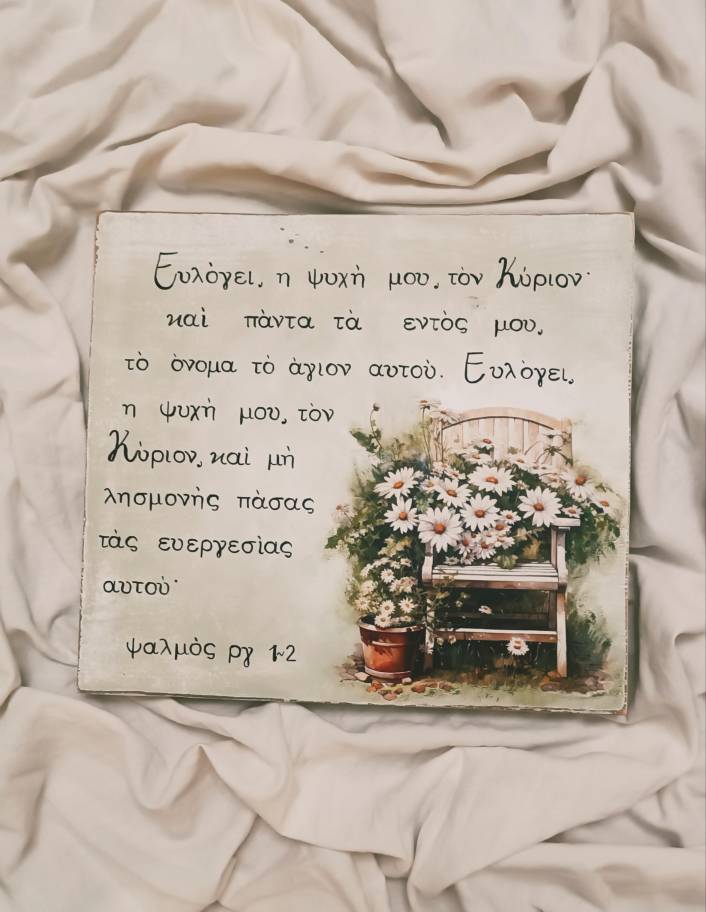 Ευλὸγει, η ψυχὴ μου, τὸν Κὺριον·
καὶ πὰντα τὰ εντὸς μου,
τὸ ὸνομα τὸ ὰγιον αυτοὺ. Ευλὸγει,
η ψυχὴ μου, τὸν
Κὺριον, καὶ μὴ
λησμονὴς πὰσας
τὰς ευεργεσὶας
αυτοὺ·
ψαλμὸς ργ 1~2